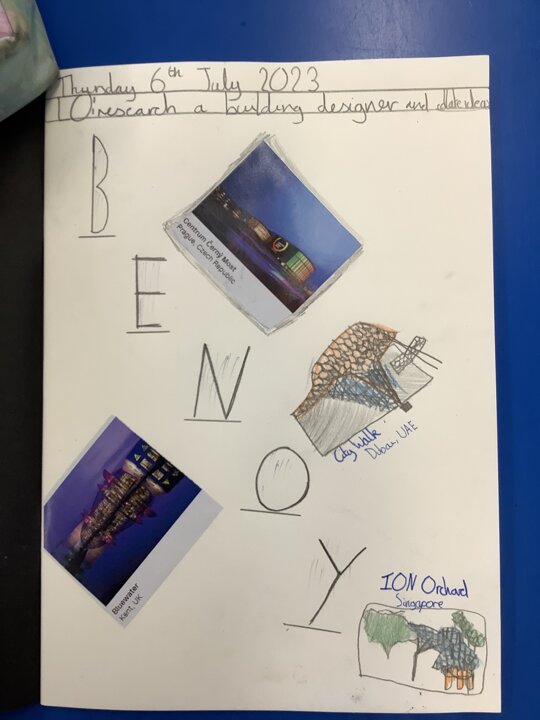 Thursday 6th July 2023
LO: research a building designer and collate ideas
B
Centrum Černý Most
Prague, Czech Republic
E
N
City Walk
Dubai, UAE
O
Bluewater
Kent, UK
Y
ION Orchard
Singapore